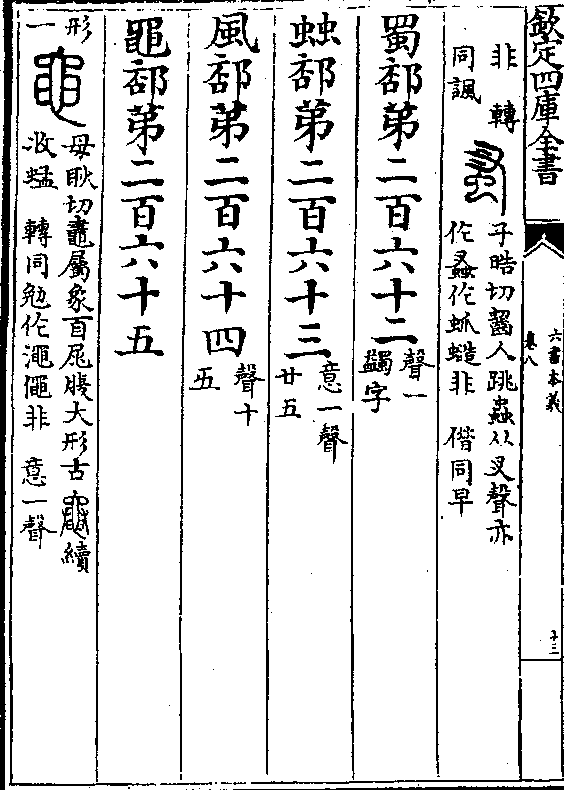 欽定四庫全書
六書本義
卷八
十三
非 轉
同諷
子晧切齧人跳蟲从叉聲亦
作蝨作蚤蟣非 借同早
蜀部第二百六十二
聲一
蠲字
䖵部第二百六十三
意一聲
廿五
風部第二百六十四
聲十
五
黽部第二百六十五
形
一
母耿切鼃屬象首尾腹大形古續
收蜢 轉同勉作澠僶非 意一聲